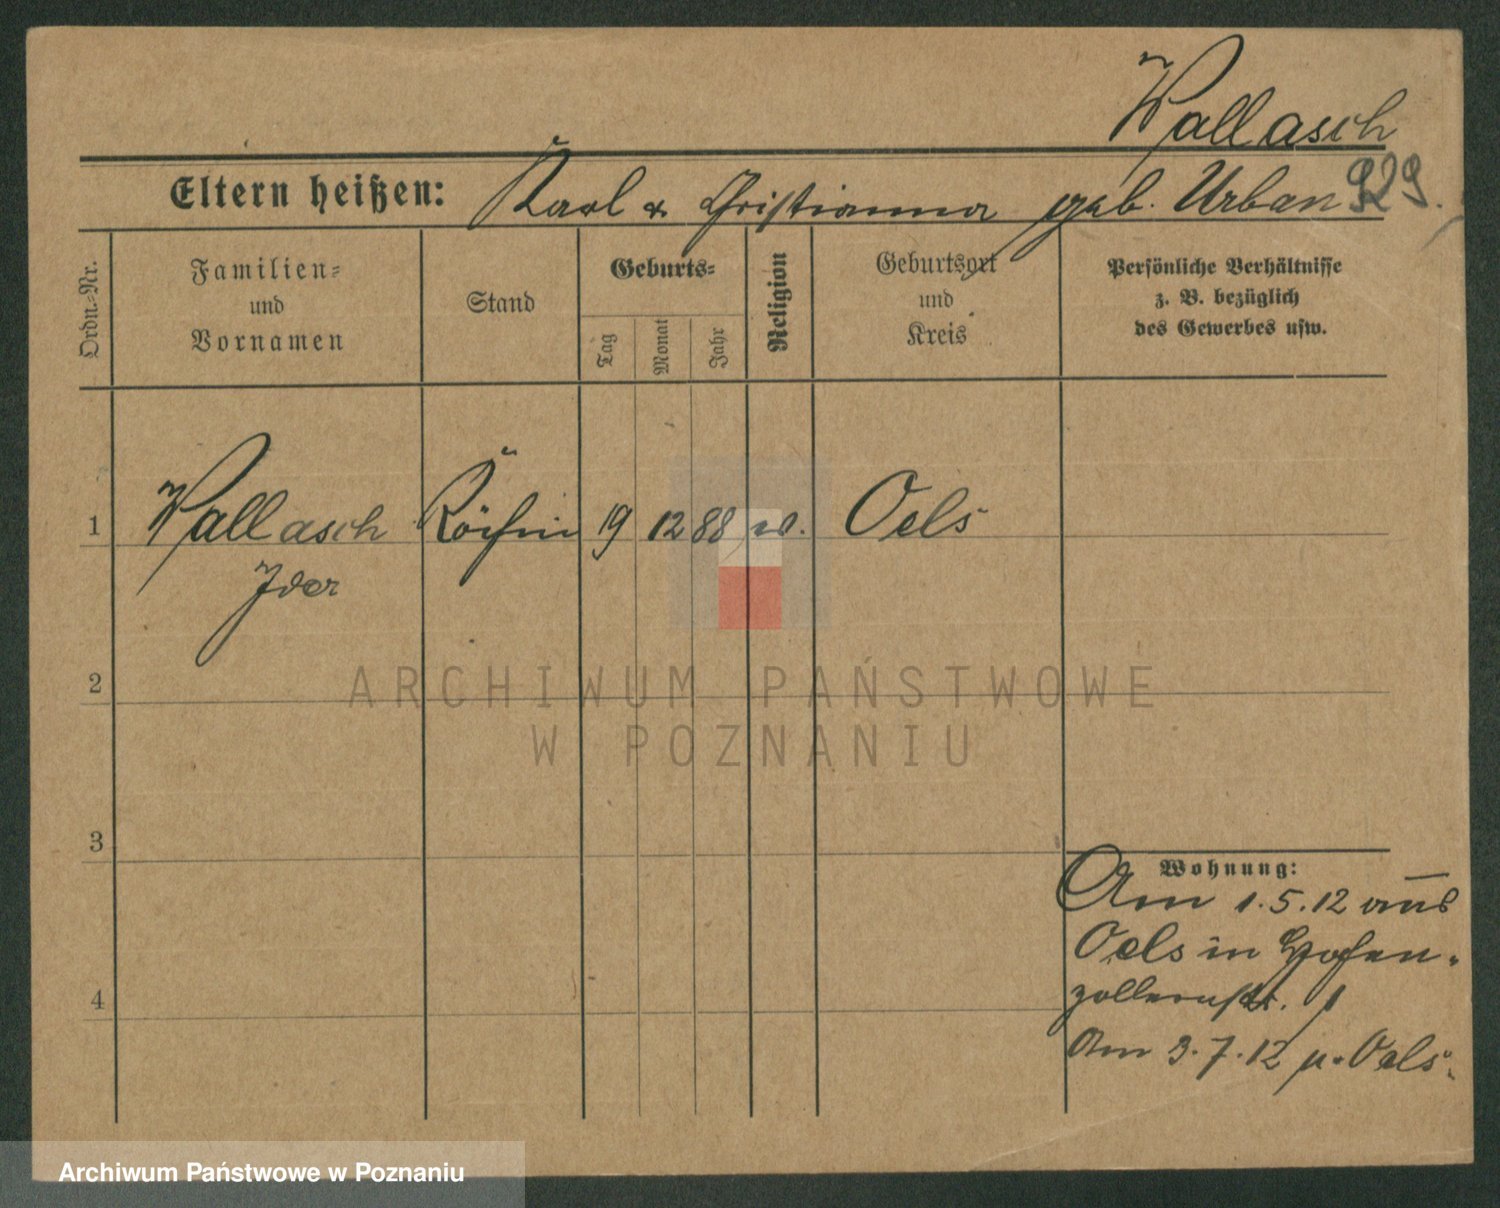 Wallasch
Eltern heißen: Karl & Christianna geb. Urban 929.
Ordn.=Nr.
Familien=
und
Vornamen
Stand
Geburts=
Tag
Monat
Jahr
Religion
Geburtsort
und
Kreis
Persönliche Verhältnisse
z. B. bezüglich
des Gewerbes usw.
1 Wallasch Köchin 19 12 88 Oels
Ida
2
3
4
Wohnung:
Am 1.5.12 aus
Oels in Hohen-
zollernstr. 1
Am 3.7.12 n. Oels.
ARCHIWUM PAŃSTWOWE
W POZNANIU
Archiwum Państwowe w Poznaniu